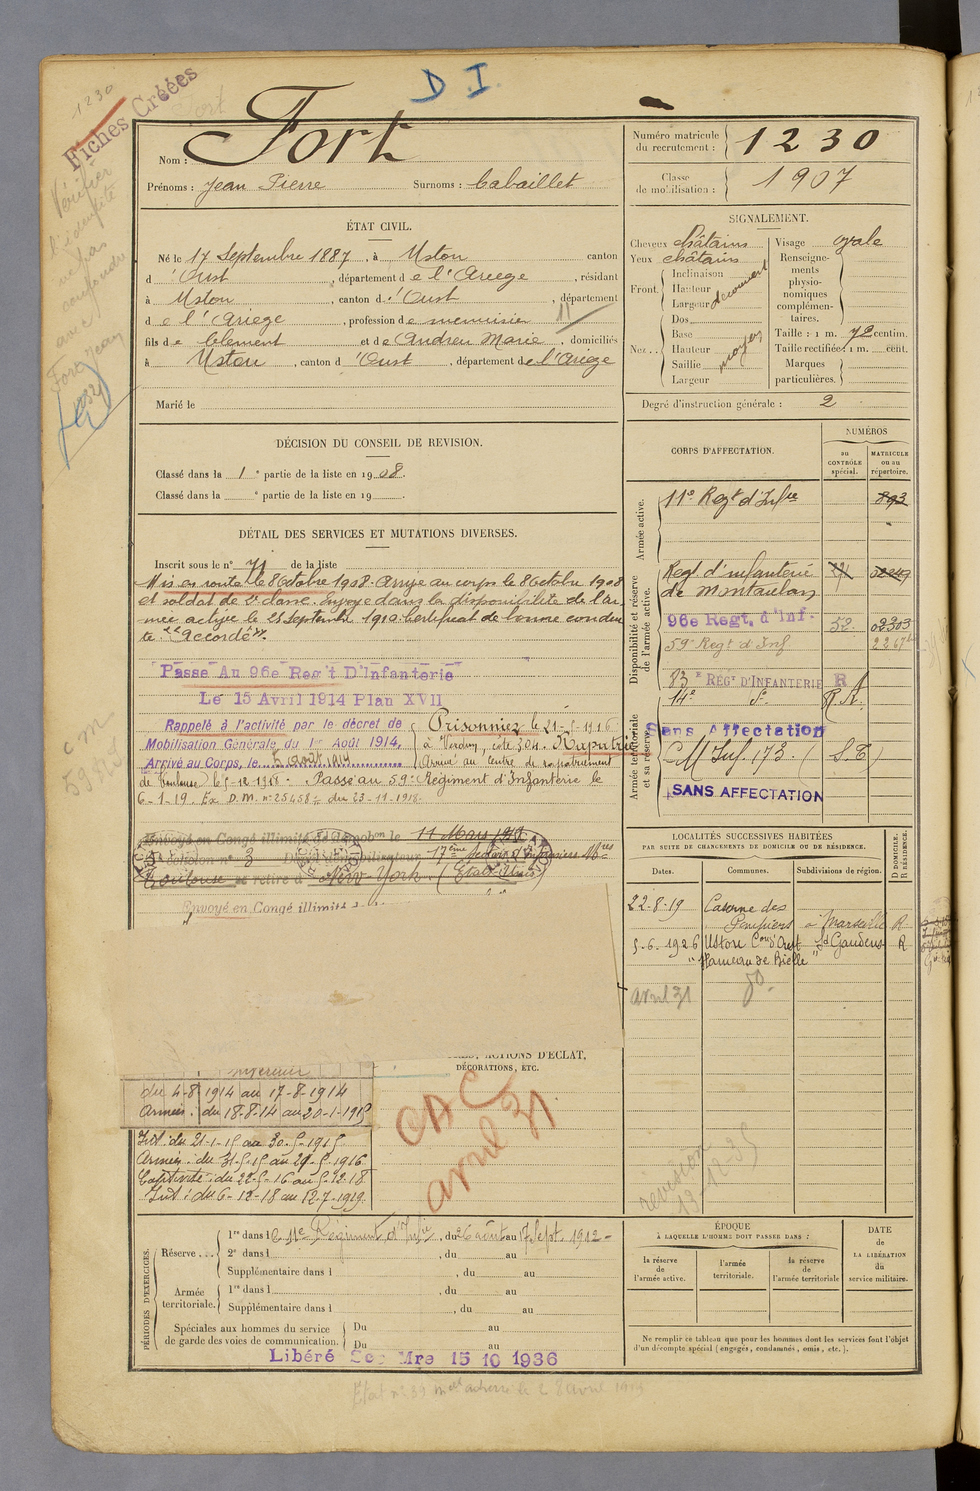 D I
1230
Fiches Créées
Fort
Vérifier
l'identité
ne pas
confondre
avec
Fort Jean
Nom : Fort
Prénoms : Jean Pierre Surnoms : Cabaillet
Numéro matricule du recrutement : 1230
Classe de mobilisation : 1907
ÉTAT CIVIL.
Né le 17 Septembre 1887, à Ustou canton
d'Oust, département de l'Ariège, résidant
à Ustou, canton d'Oust, département
de l'Ariège, profession de menuisier 11
fils de Clément et de Andreu Marie, domiciliés
à Ustou, canton d'Oust, département de l'Ariège
Marié le
SIGNALEMENT.
Cheveux châtains
Yeux châtains
Front. Inclinaison
Hauteur
Largeur
Nez.. Dos
Base
Hauteur moyen
Saillie
Largeur
Visage ovale
Renseignements physionomiques complémentaires.
Taille : 1 m. 72 centim.
Taille rectifiée : 1 m. cent.
Marques particulières.
Degré d'instruction générale : 2
DÉCISION DU CONSEIL DE REVISION.
Classé dans la 1e partie de la liste en 1908.
Classé dans la e partie de la liste en 19 .
DÉTAIL DES SERVICES ET MUTATIONS DIVERSES.
Inscrit sous le n° 71 de la liste
Mis en route le 8 Octobre 1908. Arrivé au corps le 8 Octobre 1908
et soldat de 2e classe. Envoyé dans la disponibilité de l'ar-
mée active le 25 Septembre 1910. Certificat de bonne condui-
te "Accordé".
Passé Au 96e Reg't D'Infanterie
Le 15 Avril 1914 Plan XVII
Rappelé à l'activité par le décret de
Mobilisation Générale du 1er Août 1914,
Arrivé au Corps, le 5 août 1914
Prisonnier le 21-5-1916
à Verdun, côte 304. Rapatrié
Arrivé au Centre de rapatriement
de Toulouse le 5-12-1918. Passé au 59e Régiment d'Infanterie le
6-1-19. Ex. D.M. n° 25458 du 23-11-1918.
Envoyé en Congé illimité de démobon le 11 Mars 1919
échelon n° 3 Dépôt démobilisateur 17ème Section d'Infirmiers Mres
Toulouse se retire à New-York. (Etats-Unis)
Envoyé en Congé illimité
C M
59
CORPS D'AFFECTATION.
NUMÉROS
au CONTRÔLE spécial.
MATRICULE ou au répertoire.
Armée active.
11e Regt d'Infie 893
Disponibilité et réserve de l'armée active.
Regt. d'infanterie 71
de Montauban
96e Regt. d'Inf. 52 02303
59e Regt d'Inf
83e RÉGt D'INFANTERIE R
14e S. R.A.
Armée territoriale et sa réserve
Sans Affectation
C M Inf. 173. S.E.
SANS AFFECTATION
LOCALITÉS SUCCESSIVES HABITÉES
PAR SUITE DE CHANGEMENTS DE DOMICILE OU DE RÉSIDENCE.
Dates. Communes. Subdivisions de région. D DOMICILE. R RÉSIDENCE.
22-8-19 Caserne des
Pompiers à Marseille R
5-6-1926 Ustou Con d'Oust St Gaudens R
" Hameau de Bielle "
avril 31 do.
ACTIONS D'ÉCLAT,
DÉCORATIONS, ETC.
CAC
avril 31
revision
13-12-35
Intérieur
du 4-8 1914 au 17-8-1914
Armées : du 18-8-14 au 20-1-1915
Int : du 21-1-15 au 30-5-1915
Armées : du 31-5-15 au 21-5-1916
Captivité : du 22-5-16 au 5-12-18
Int : du 6-12-18 au 12-7-1919.
PÉRIODES D'EXERCICES.
Réserve... 1re dans le 11e Régiment d'Infie, du 26 août au 17 Sept. 1912
2e dans l , du au
Supplémentaire dans l , du au
Armée territoriale. 1re dans l , du au
Supplémentaire dans l , du au
Spéciales aux hommes du service Du au
de garde des voies de communication. Du au
Libéré Ser Mre 15 10 1936
ÉPOQUE
À LAQUELLE L'HOMME DOIT PASSER DANS :
la réserve de l'armée active.
l'armée territoriale.
la réserve de l'armée territoriale
DATE DE LA LIBÉRATION du service militaire.
Ne remplir ce tableau que pour les hommes dont les services font l'objet
d'un décompte spécial (engagés, condamnés, omis, etc.).